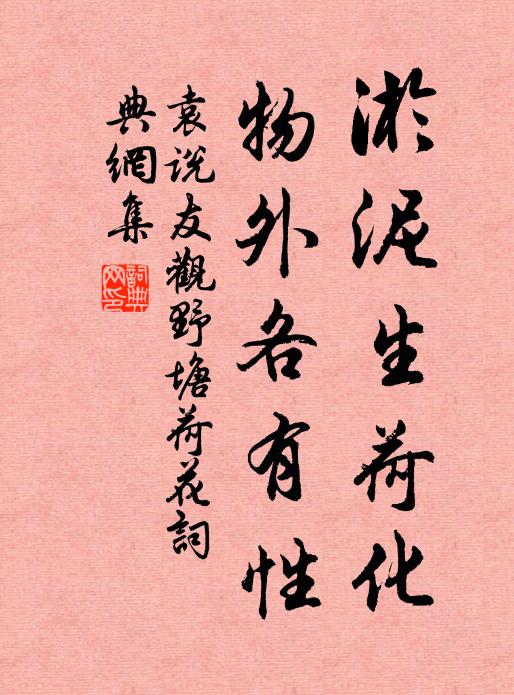 淤泥生荷化
物外各有性
袁說友觀野塘荷花詞
典網集
詞典網印